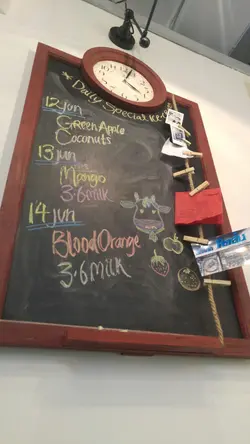 Daily Special
12 Jun
Green Apple
Coconuts
13 jun
Mango
3.6 milk
14 jun
Blood Orange
3.6 milk